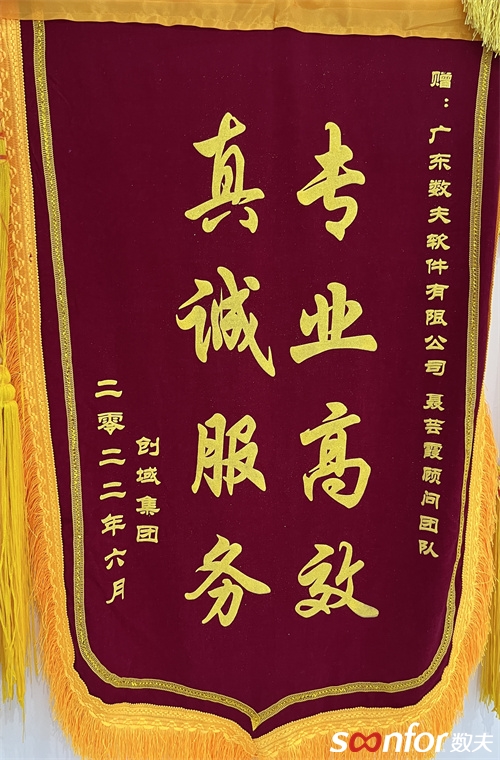 赠：广东数夫软件有限公司 聂芸霞顾问团队
专业高效
真诚服务
创域集团
二零二二年六月
soonfor数夫